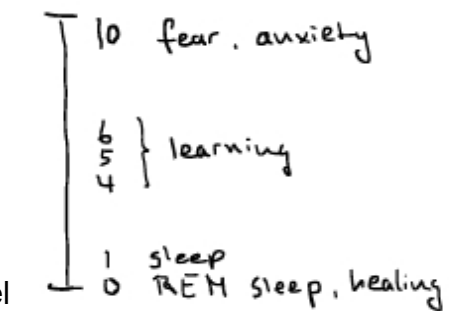 10 fear, anxiety
6
5 } learning
4
1 sleep
el 0 REM sleep, healing